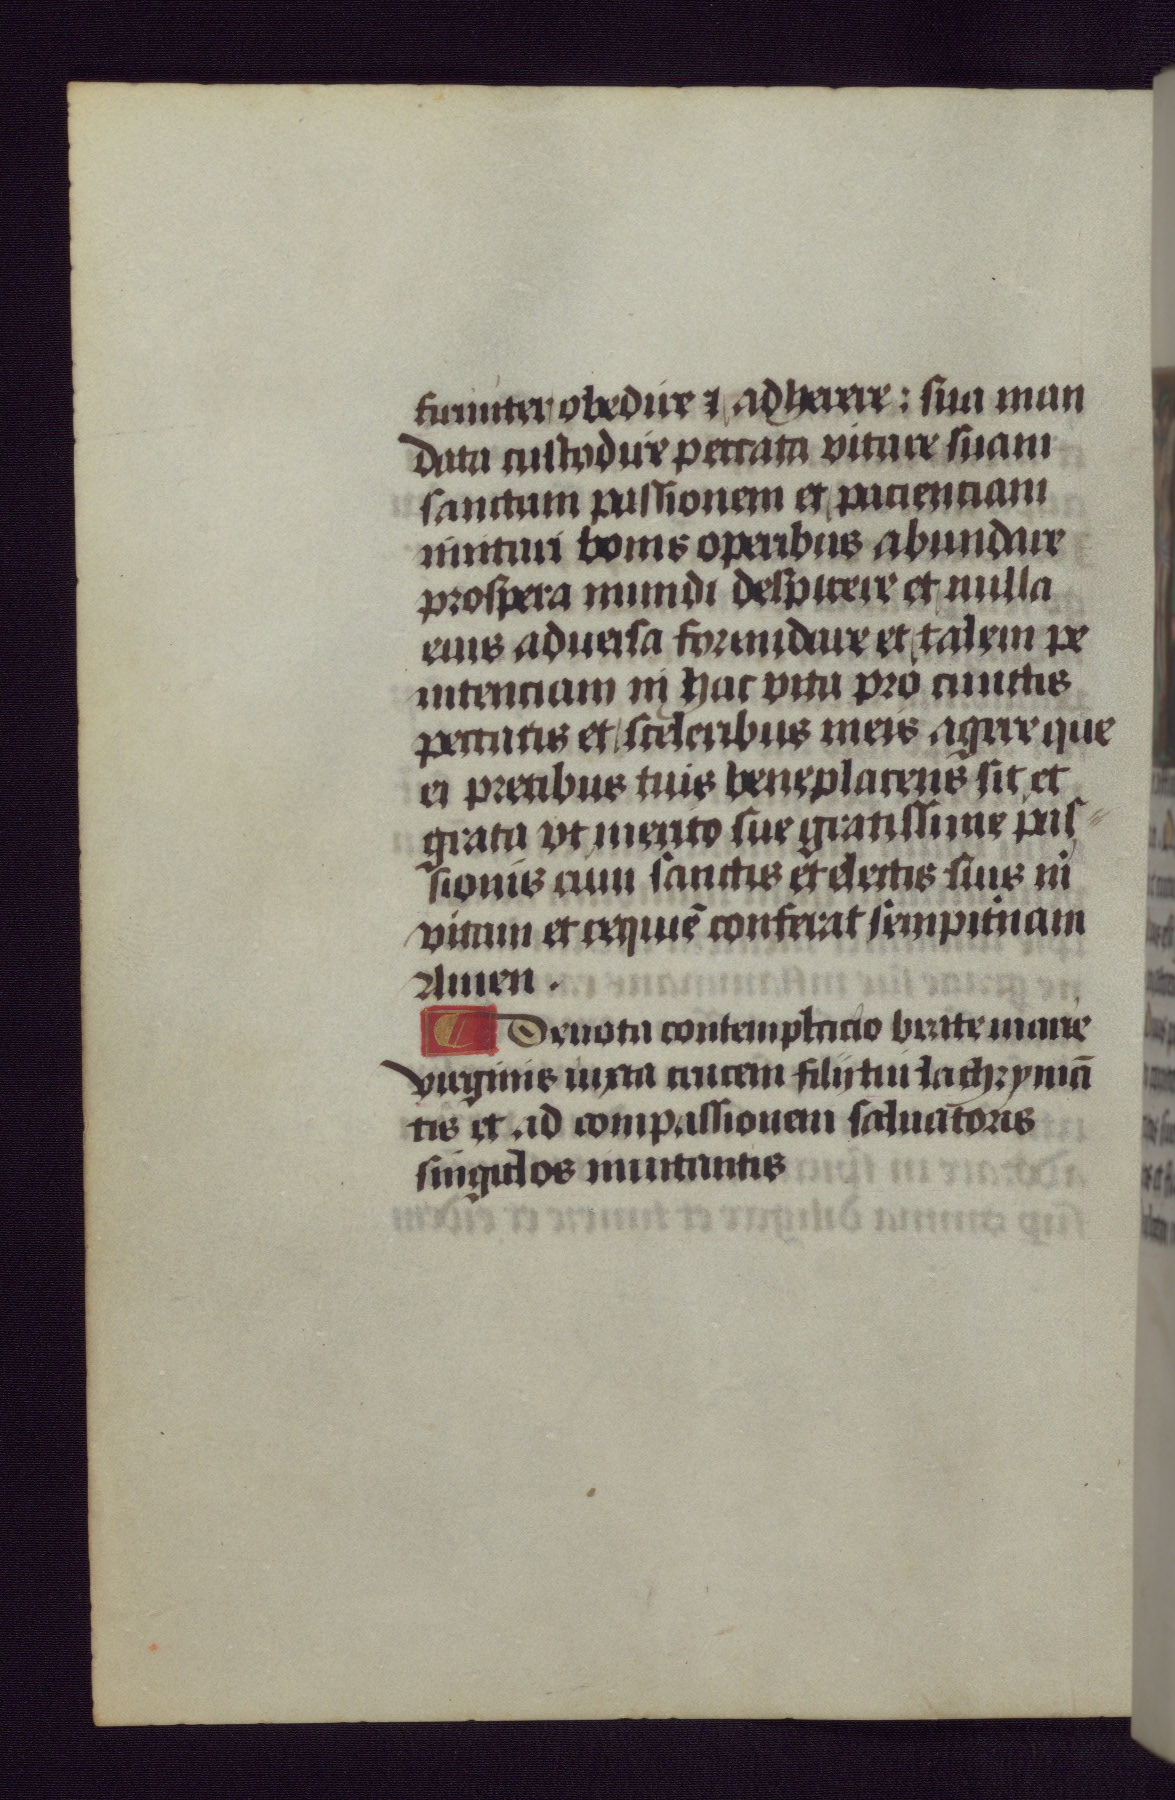 firmiter obedire ⁊ adherere : sua man
data custodire peccata vitare suam
sanctam passionem et pacienciam
imitari bonis operibus abundare
prospera mundi despicere et nulla
eius aduersa formidare et talem pe
nitenciam in hac vita pro cunctis
peccatis et sceleribus meis agere que
ei precibus tuis beneplacens sit et
grata vt merito sue gratissime pas
sionis cum sanctis et electis suis in
vitam et requiē conferat sempit̄nam
Amen .
Deuota contemplacio beate marie
virginis iuxta crucem filij tui lachrymā
tis et ad compassionem saluatoris
singulos inuitantis